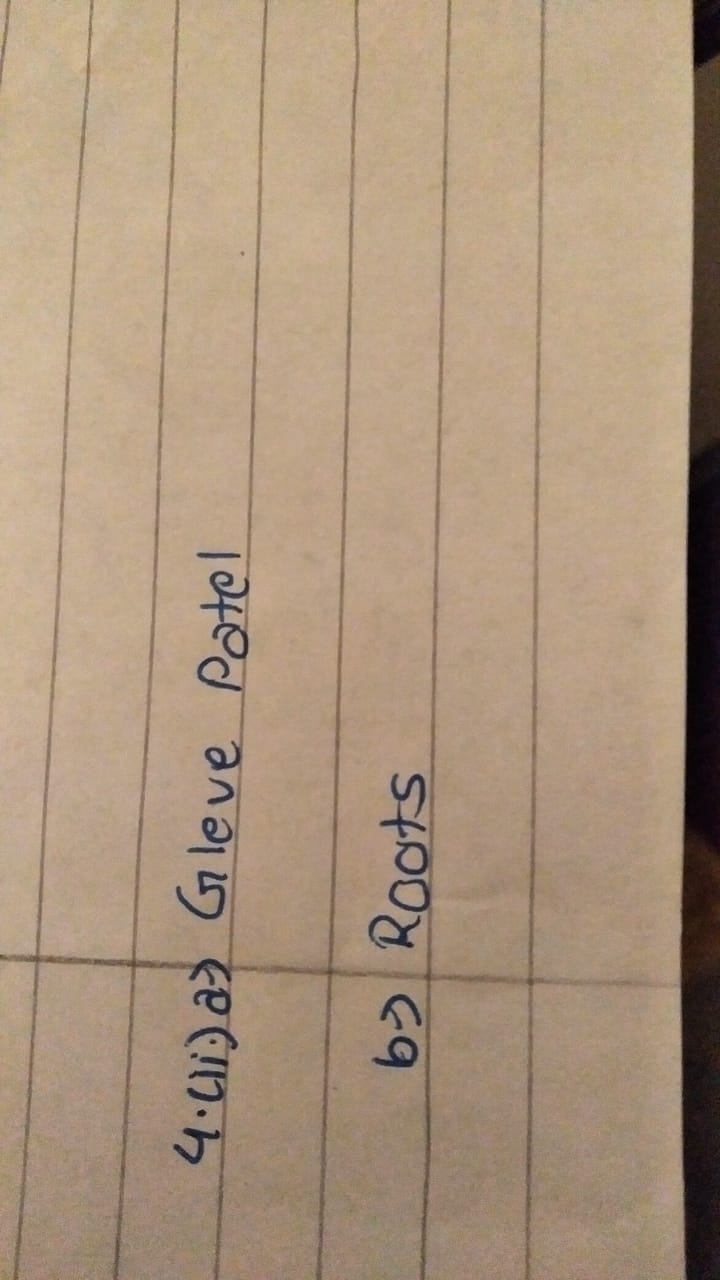 4.(ii) a→ Gleve Patel
b→ Roots